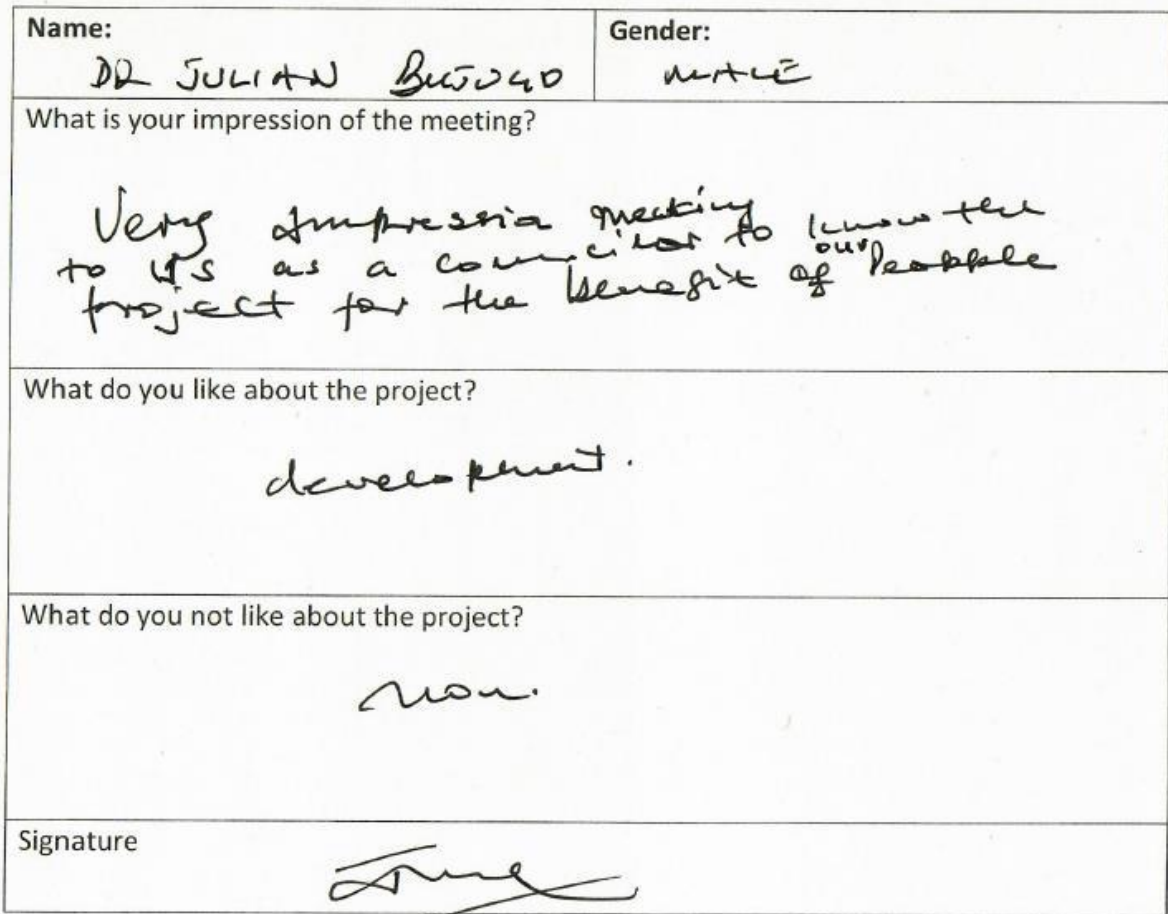 Name:
DR JULIAN
Gender:
MALE
What is your impression of the meeting?
Very impressia meeting
to us as a councilor to know the
project for the benefit of our Peopple
What do you like about the project?
development.
What do you not like about the project?
non.
Signature